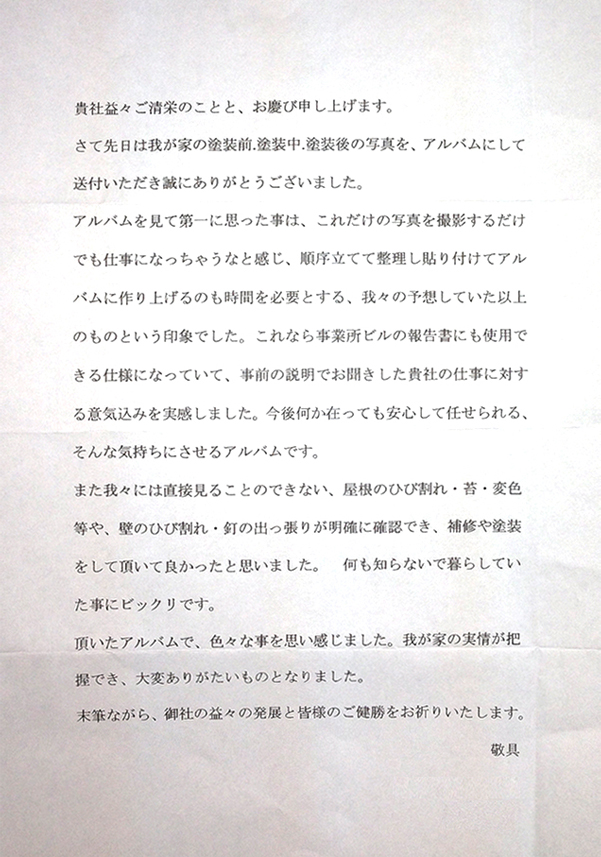 貴社益々ご清栄のことと、お慶び申し上げます。
さて先日は我が家の塗装前.塗装中.塗装後の写真を、アルバムにして
送付いただき誠にありがとうございました。
アルバムを見て第一に思った事は、これだけの写真を撮影するだけ
でも仕事になっちゃうなと感じ、順序立てて整理し貼り付けてアル
バムに作り上げるのも時間を必要とする、我々の予想していた以上
のものという印象でした。これなら事業所ビルの報告書にも使用で
きる仕様になっていて、事前の説明でお聞きした貴社の仕事に対す
る意気込みを実感しました。今後何か在っても安心して任せられる、
そんな気持ちにさせるアルバムです。
また我々には直接見ることのできない、屋根のひび割れ・苔・変色
等や、壁のひび割れ・釘の出っ張りが明確に確認でき、補修や塗装
をして頂いて良かったと思いました。　何も知らないで暮らしてい
た事にビックリです。
頂いたアルバムで、色々な事を思い感じました。我が家の実情が把
握でき、大変ありがたいものとなりました。
末筆ながら、御社の益々の発展と皆様のご健勝をお祈りいたします。
敬具